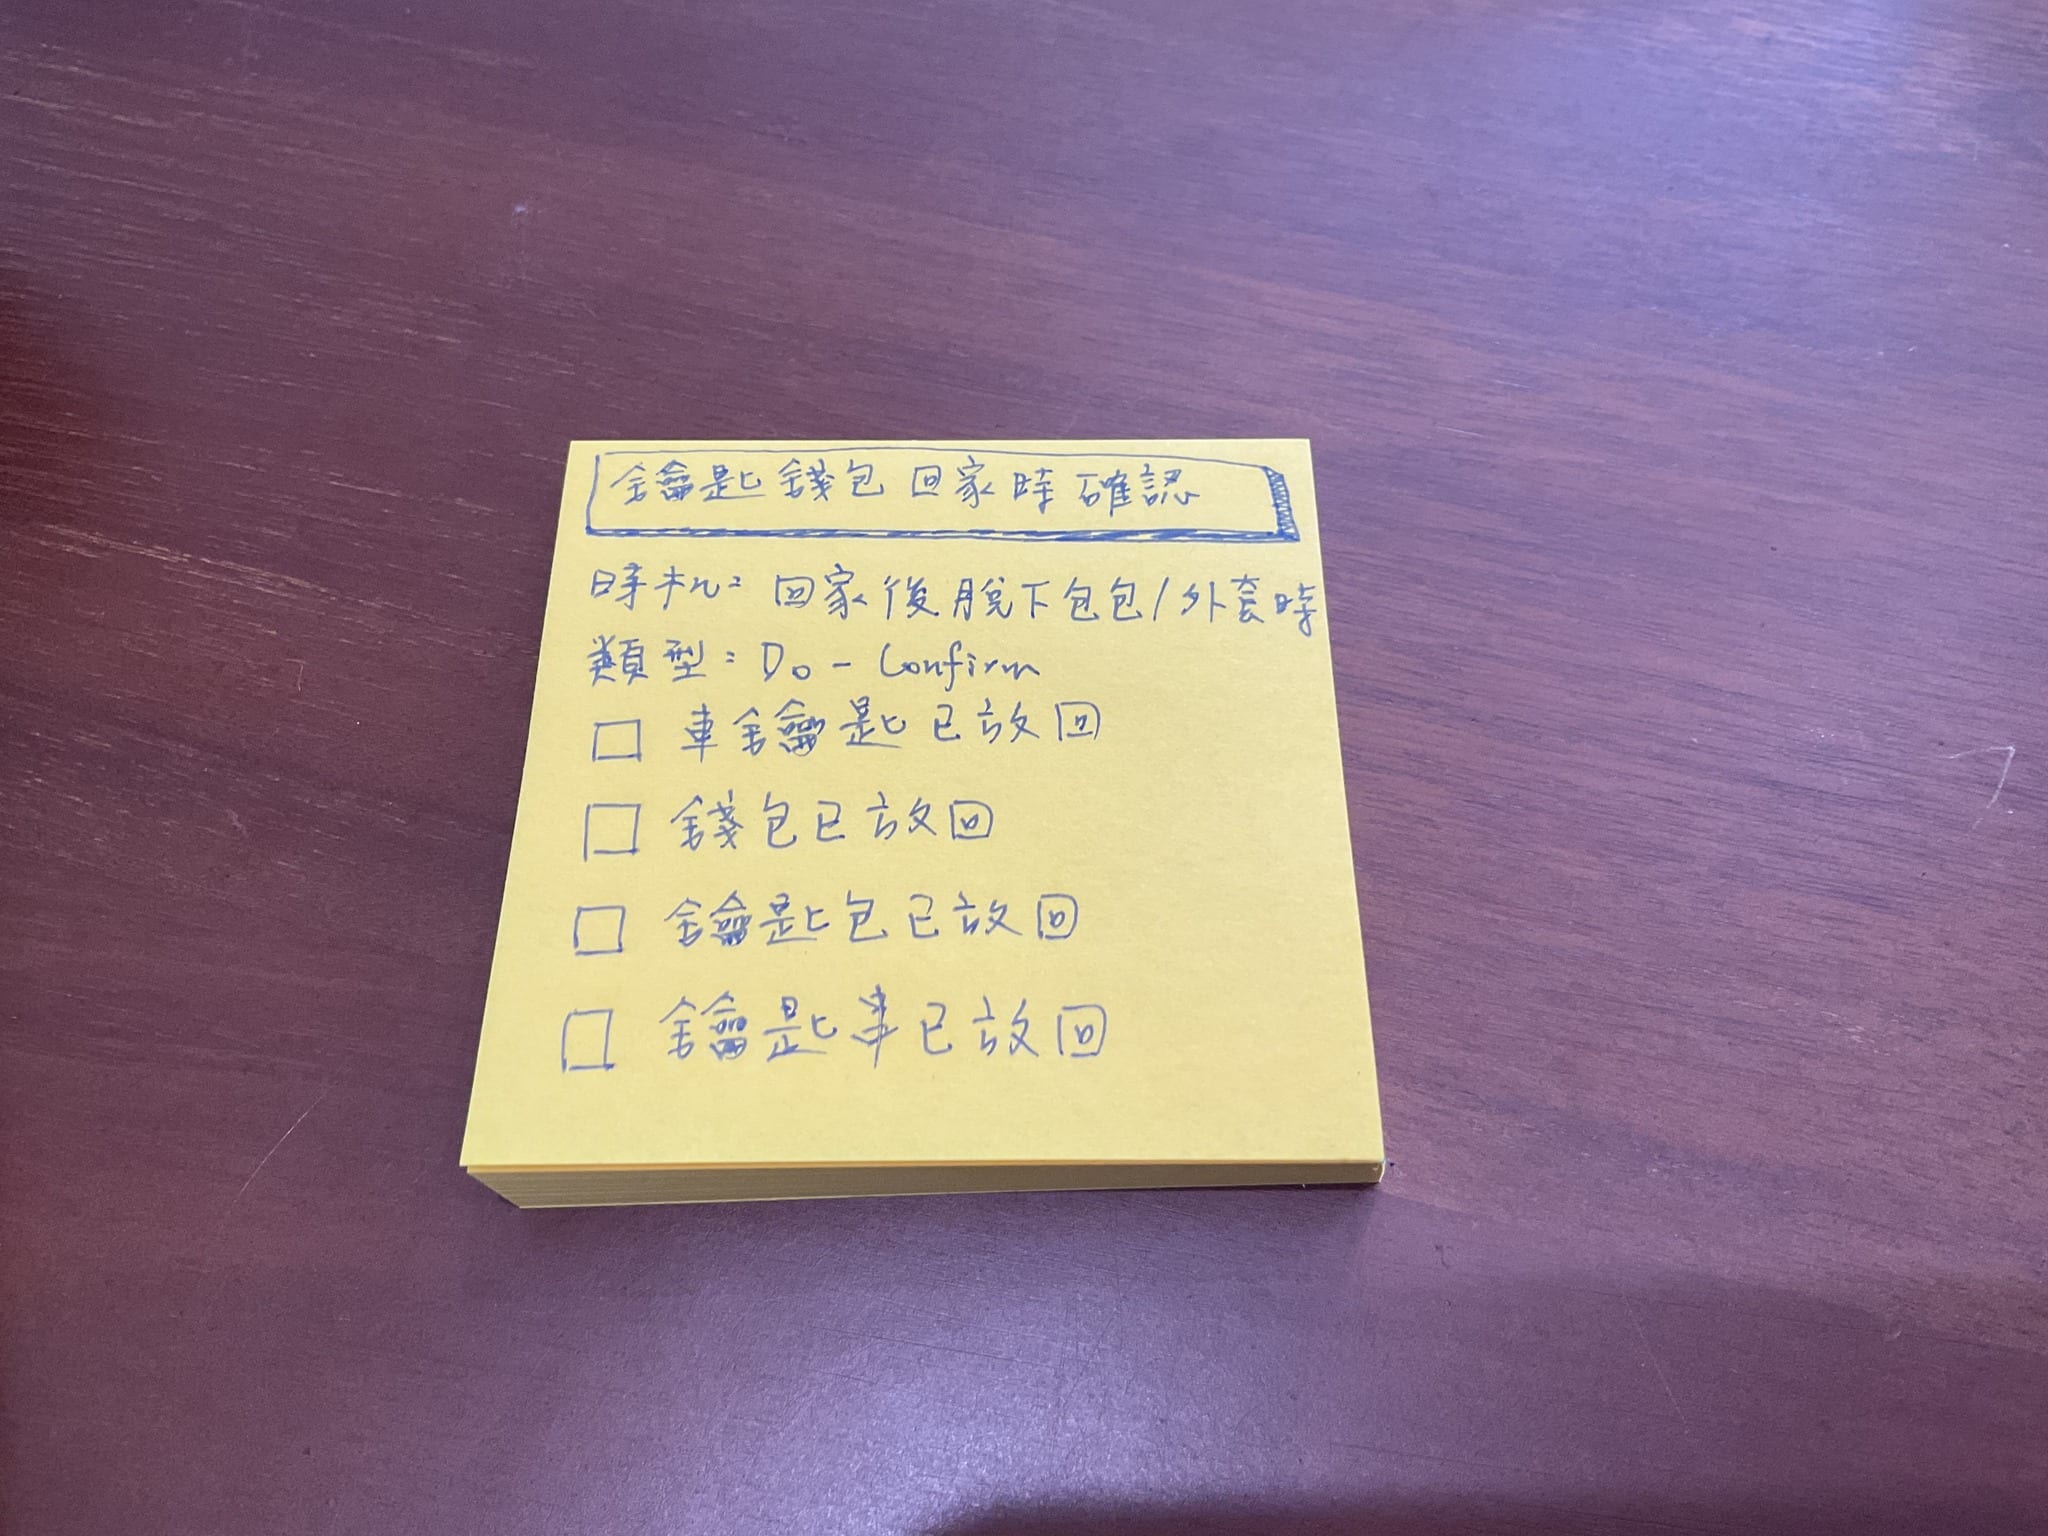 鑰匙錢包回家時確認
時机: 回家後脫下包包/外套時
類型: Do-Confirm
□ 車鑰匙已放回
□ 錢包已放回
□ 鑰匙包已放回
□ 鑰匙串已放回